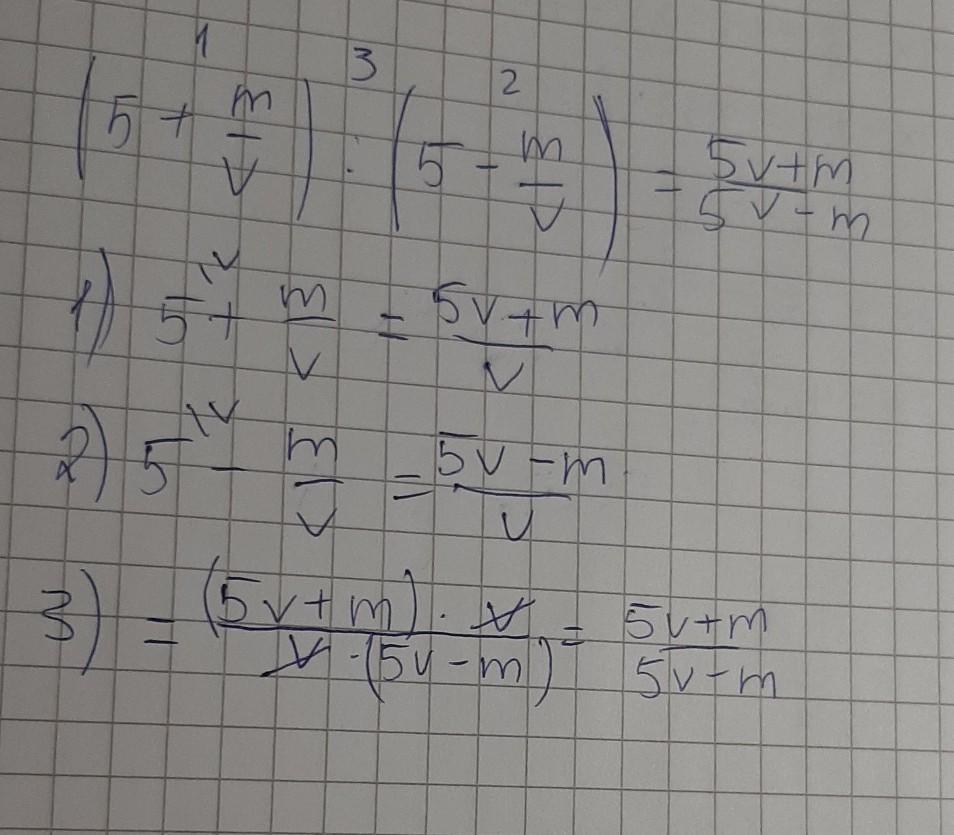 1 3 2
(5 + m/v) : (5 - m/v) = 5v+m/5v-m
1) 5 \v + m/v = 5v+m/v
2) 5 \v - m/v = 5v-m/v
3) = (5v+m) · v/v · (5v-m) = 5v+m/5v-m